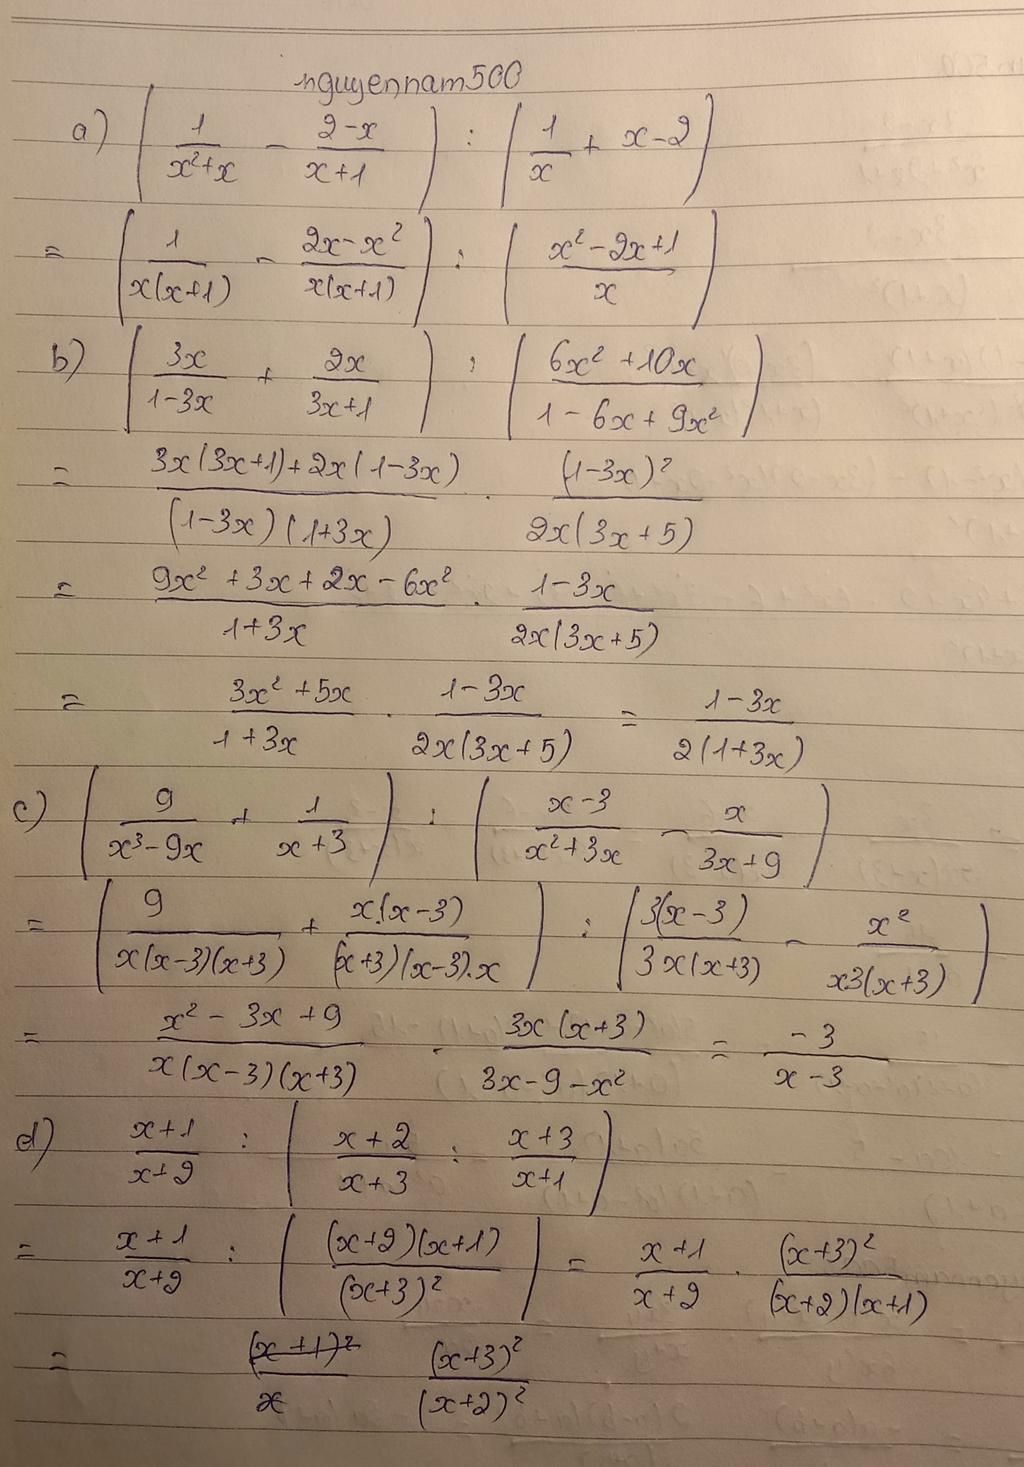 nguyennam500
a) (1/(x²+x) - (2-x)/(x+1)) : (1/x + x-2)
= (1/(x(x+1)) - (2x-x²)/(x(x+1))) : ((x²-2x+1)/x)
b) (3x/(1-3x) + 2x/(3x+1)) : ((6x²+10x)/(1-6x+9x²))
= (3x(3x+1)+2x(1-3x))/((1-3x)(1+3x)) . (1-3x)²/(2x(3x+5))
= (9x²+3x+2x-6x²)/(1+3x) . (1-3x)/(2x(3x+5))
= (3x²+5x)/(1+3x) . (1-3x)/(2x(3x+5)) = (1-3x)/(2(1+3x))
c) (9/(x³-9x) + 1/(x+3)) : ((x-3)/(x²+3x) - x/(3x+9))
= (9/(x(x-3)(x+3)) + x.(x-3)/((x+3)(x-3).x)) : (3(x-3)/(3x(x+3)) - x²/(x3(x+3)))
= (x²-3x+9)/(x(x-3)(x+3)) . 3x(x+3)/(3x-9-x²) = -3/(x-3)
d) (x+1)/(x+2) : ((x+2)/(x+3) : (x+3)/(x+1))
= (x+1)/(x+2) : ((x+2)(x+1)/(x+3)²) = (x+1)/(x+2) . (x+3)²/((x+2)(x+1))
= (x+1)²/x (x+3)²/(x+2)²